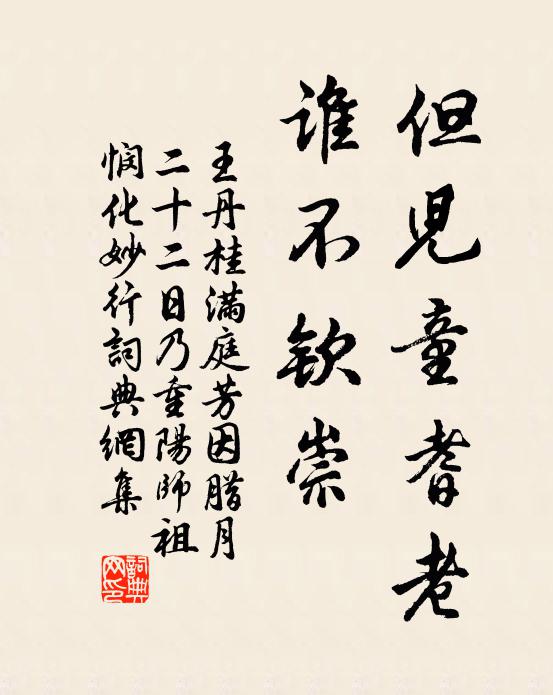 但児童耆老
谁不钦崇
王丹桂满庭芳因腊月
二十二日乃重陽師祖
悯化妙行詞典網集
詞典网印